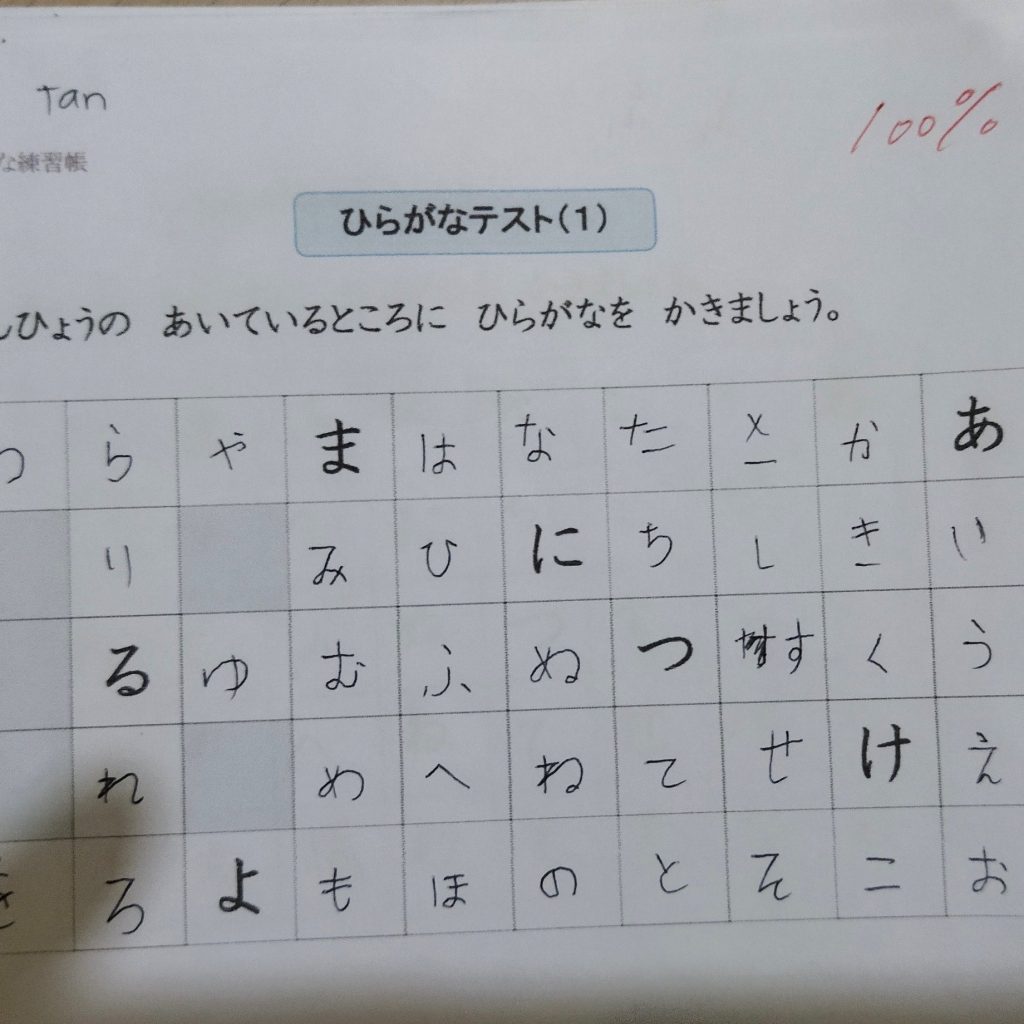 Tan
100%
な練習帳
ひらがなテスト(1)
んひょうの あいているところに ひらがなを かきましょう。
わ ら や ま は な た さ か あ
り み ひ に ち し き い
る ゆ む ふ ぬ つ す く う
れ め へ ね て せ け え
を ろ よ も ほ の と そ こ お